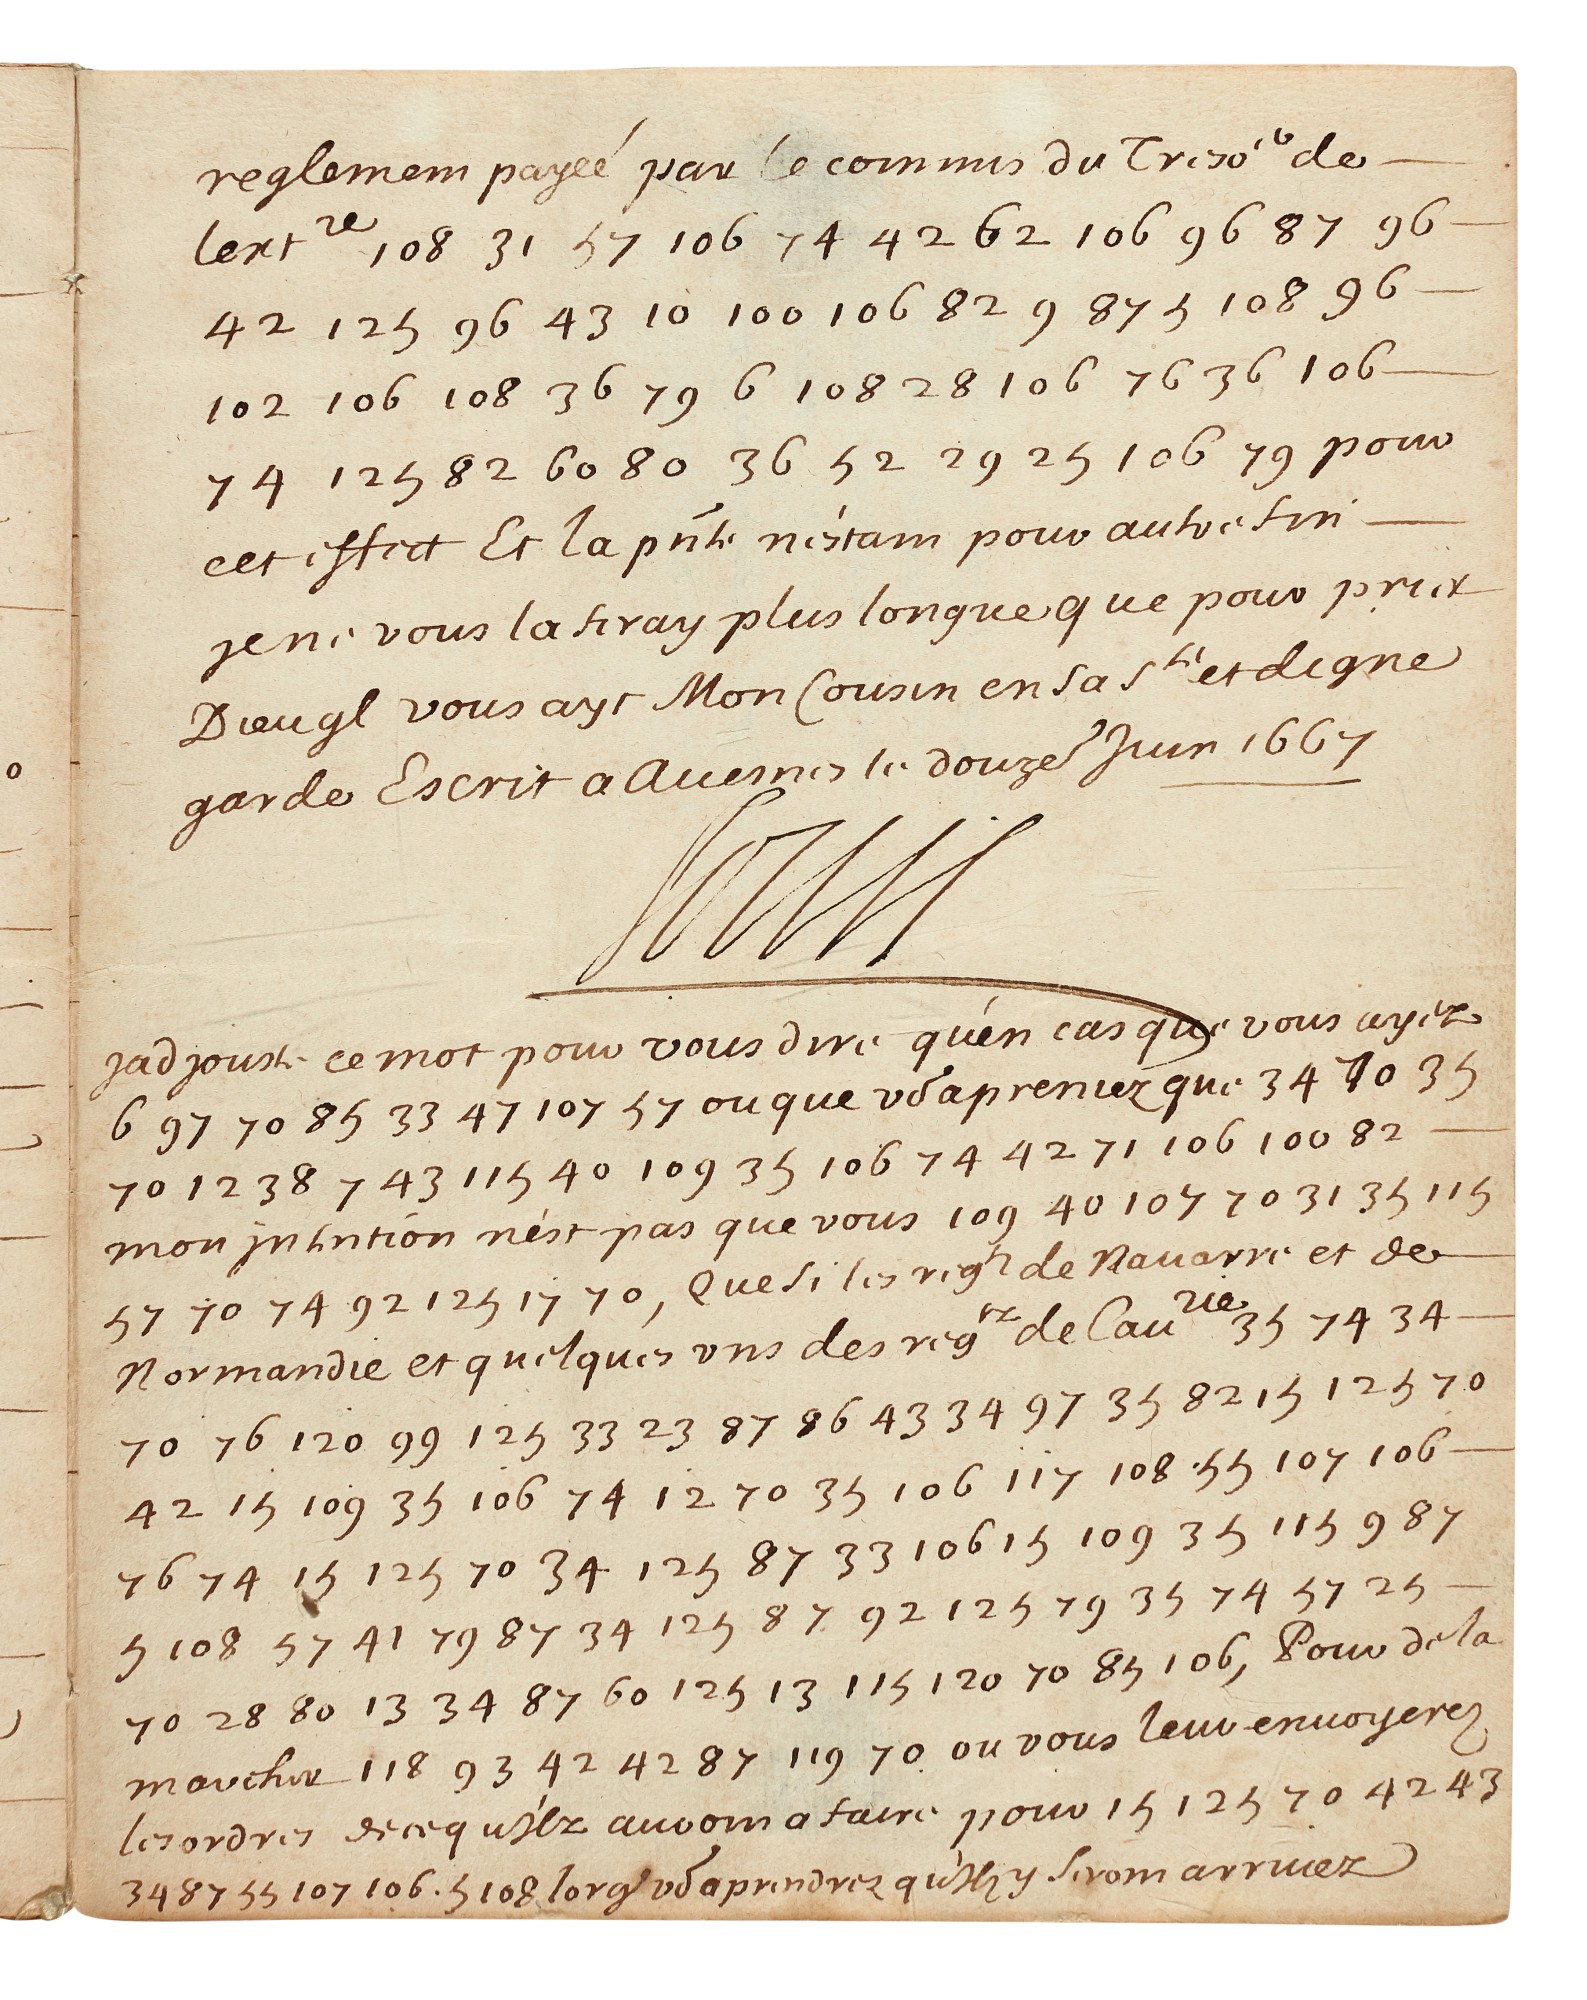 reglement payeé par le commis du Treso.r de
lext.re 108 31 57 106 74 42 62 106 96 87 96
42 125 96 43 10 100 106 82 9 87 5 108 96
102 106 108 36 79 6 108 28 106 76 36 106
74 125 82 60 80 36 52 29 25 106 79 pour
cet effect Et la pñte n'estant pour autre fin
je ne vous la feray plus longue que pour prier
Dieu qł vous ayt Mon Cousin en sa s.te et digne
garde Escrit a Auesnes le douze.e Juin 1667
Louis
Jadjouste ce mot pour vous dire qu'en cas que vous ayez
6 97 70 85 33 47 107 57 ou que vo9 apreniez que 34 70 35
70 12 38 7 43 115 40 109 35 106 74 42 71 106 100 82
mon jntention n'est pas que vous 109 40 107 70 31 35 115
57 70 74 92 125 17 70, Que si les reg.ts de Nauarre et de
Normandie et quelques vns des reg.tz de Cau.rie 35 74 34
70 76 120 99 125 33 23 87 86 43 34 97 35 82 15 125 70
42 15 109 35 106 74 12 70 35 106 117 108 55 107 106
76 74 15 125 70 34 125 87 33 106 15 109 35 115 9 87
5 108 57 41 79 87 34 125 87 92 125 79 35 74 57 25
70 28 80 13 34 87 60 125 13 115 120 70 85 106, Pour de la
marcher 118 93 42 42 87 119 70 ou vous leur enuoyerez
les ordres de ce qu'jlz auront a faire pour 15 125 70 42 43
34 87 55 107 106. 5 108 lorsq vo9 aprendrez qu'jlz y seront arriuez